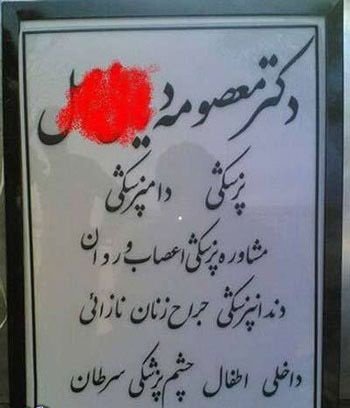 دکتر معصومه
پزشکی دامپزشکی
مشاوره پزشکی اعصاب و روان
دندانپزشکی جراح زنان نازائی
داخلی اطفال چشم پزشکی سرطان